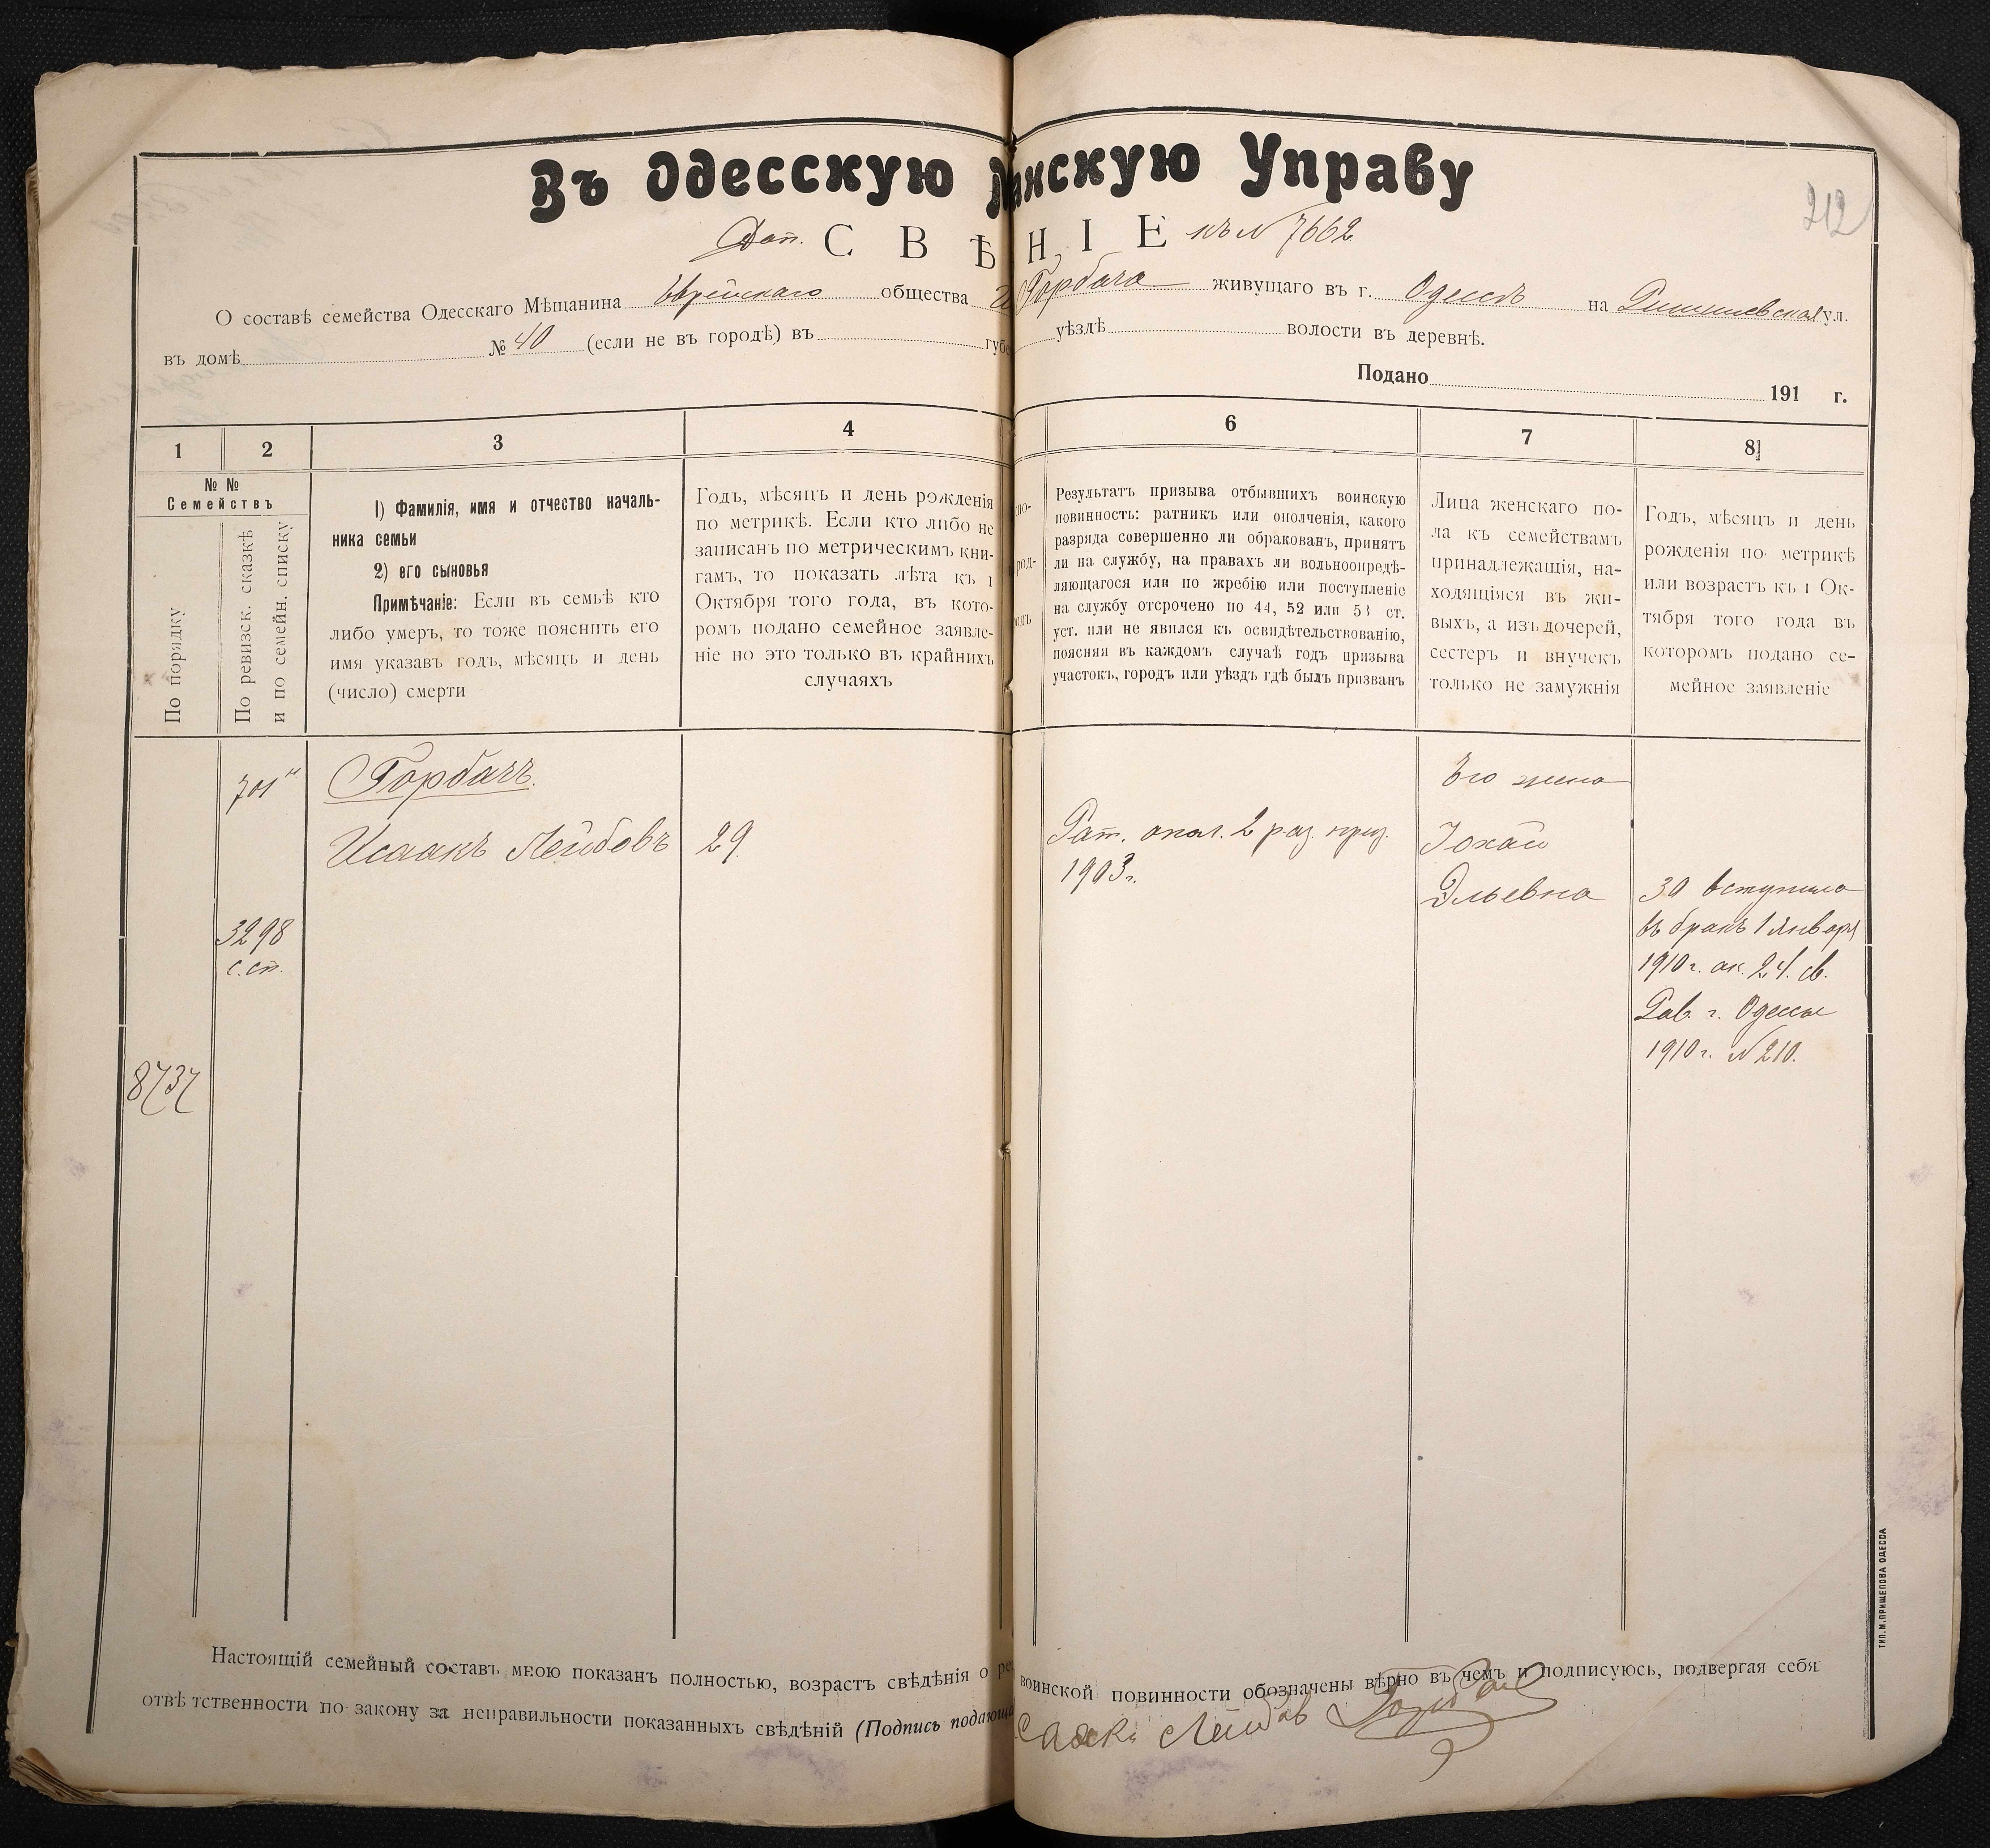 212
Въ Одесскую нскую Управу
Доп. С В Ѣ Н І Е къ № 7662
О составѣ семейства Одесскаго Мѣщанина Еврейскаго общества Горбача живущаго въ г. Одессѣ на Ришельевской ул.
въ домѣ № 40 (если не въ городѣ) въ губе уѣздѣ волости въ деревнѣ.
Подано 191 г.
1 2 3 4 6 7 8
№ № Семействъ
По порядку
По ревизск. сказкѣ
и по семейн. списку
1) Фамилія, имя и отчество началь-
ника семьи
2) его сыновья
Примѣчаніе: Если въ семьѣ кто
либо умеръ, то тоже пояснить его
имя указавъ годъ, мѣсяцъ и день
(число) смерти
Годъ, мѣсяцъ и день рожденія
по метрикѣ. Если кто либо не
записанъ по метрическимъ кни-
гамъ, то показать лѣта къ 1
Октября того года, въ кото-
ромъ подано семейное заявле-
ніе но это только въ крайнихъ
случаяхъ
по-
род-
одъ
Результатъ призыва отбывшихъ воинскую
повинность: ратникъ или ополченія, какого
разряда совершенно ли обракованъ, принятъ
ли на службу, на правахъ ли вольноопредѣ-
ляющагося или по жребію или поступленіе
на службу отсрочено по 44, 52 или 53 ст.
уст. или не явился къ освидѣтельствованію,
поясняя въ каждомъ случаѣ годъ призыва
участокъ, городъ или уѣздъ гдѣ былъ призванъ
Лица женскаго по-
ла къ семействамъ
принадлежащія, на-
ходящіяся въ жи-
выхъ, а изъ дочерей,
сестеръ и внучекъ
только не замужнія
Годъ, мѣсяцъ и день
рожденія по метрикѣ
или возрастъ къ 1 Ок-
тября того года въ
которомъ подано се-
мейное заявленіе
701 Горбачъ.
Исаакъ Лейбовъ 29
3298
с. сп.
8737
Рат. опол. 2 раз. приз.
1903 г.
Его жена
Іохай
Эльевна
30 вступила
въ бракъ 1 Января
1910 г. ак. 24. св.
Рав. г. Одессы
1910 г. № 210.
Настоящій семейный составъ мною показанъ полностью, возрастъ свѣдѣнія о воинской повинности обозначены вѣрно въ чемъ и подписуюсь, подвергая себя
отвѣтственности по закону за неправильности показанныхъ свѣдѣній (Подпись подающа Лейбов Горбач
ТИП. М. ПРИЩЕПОВА ОДЕССА